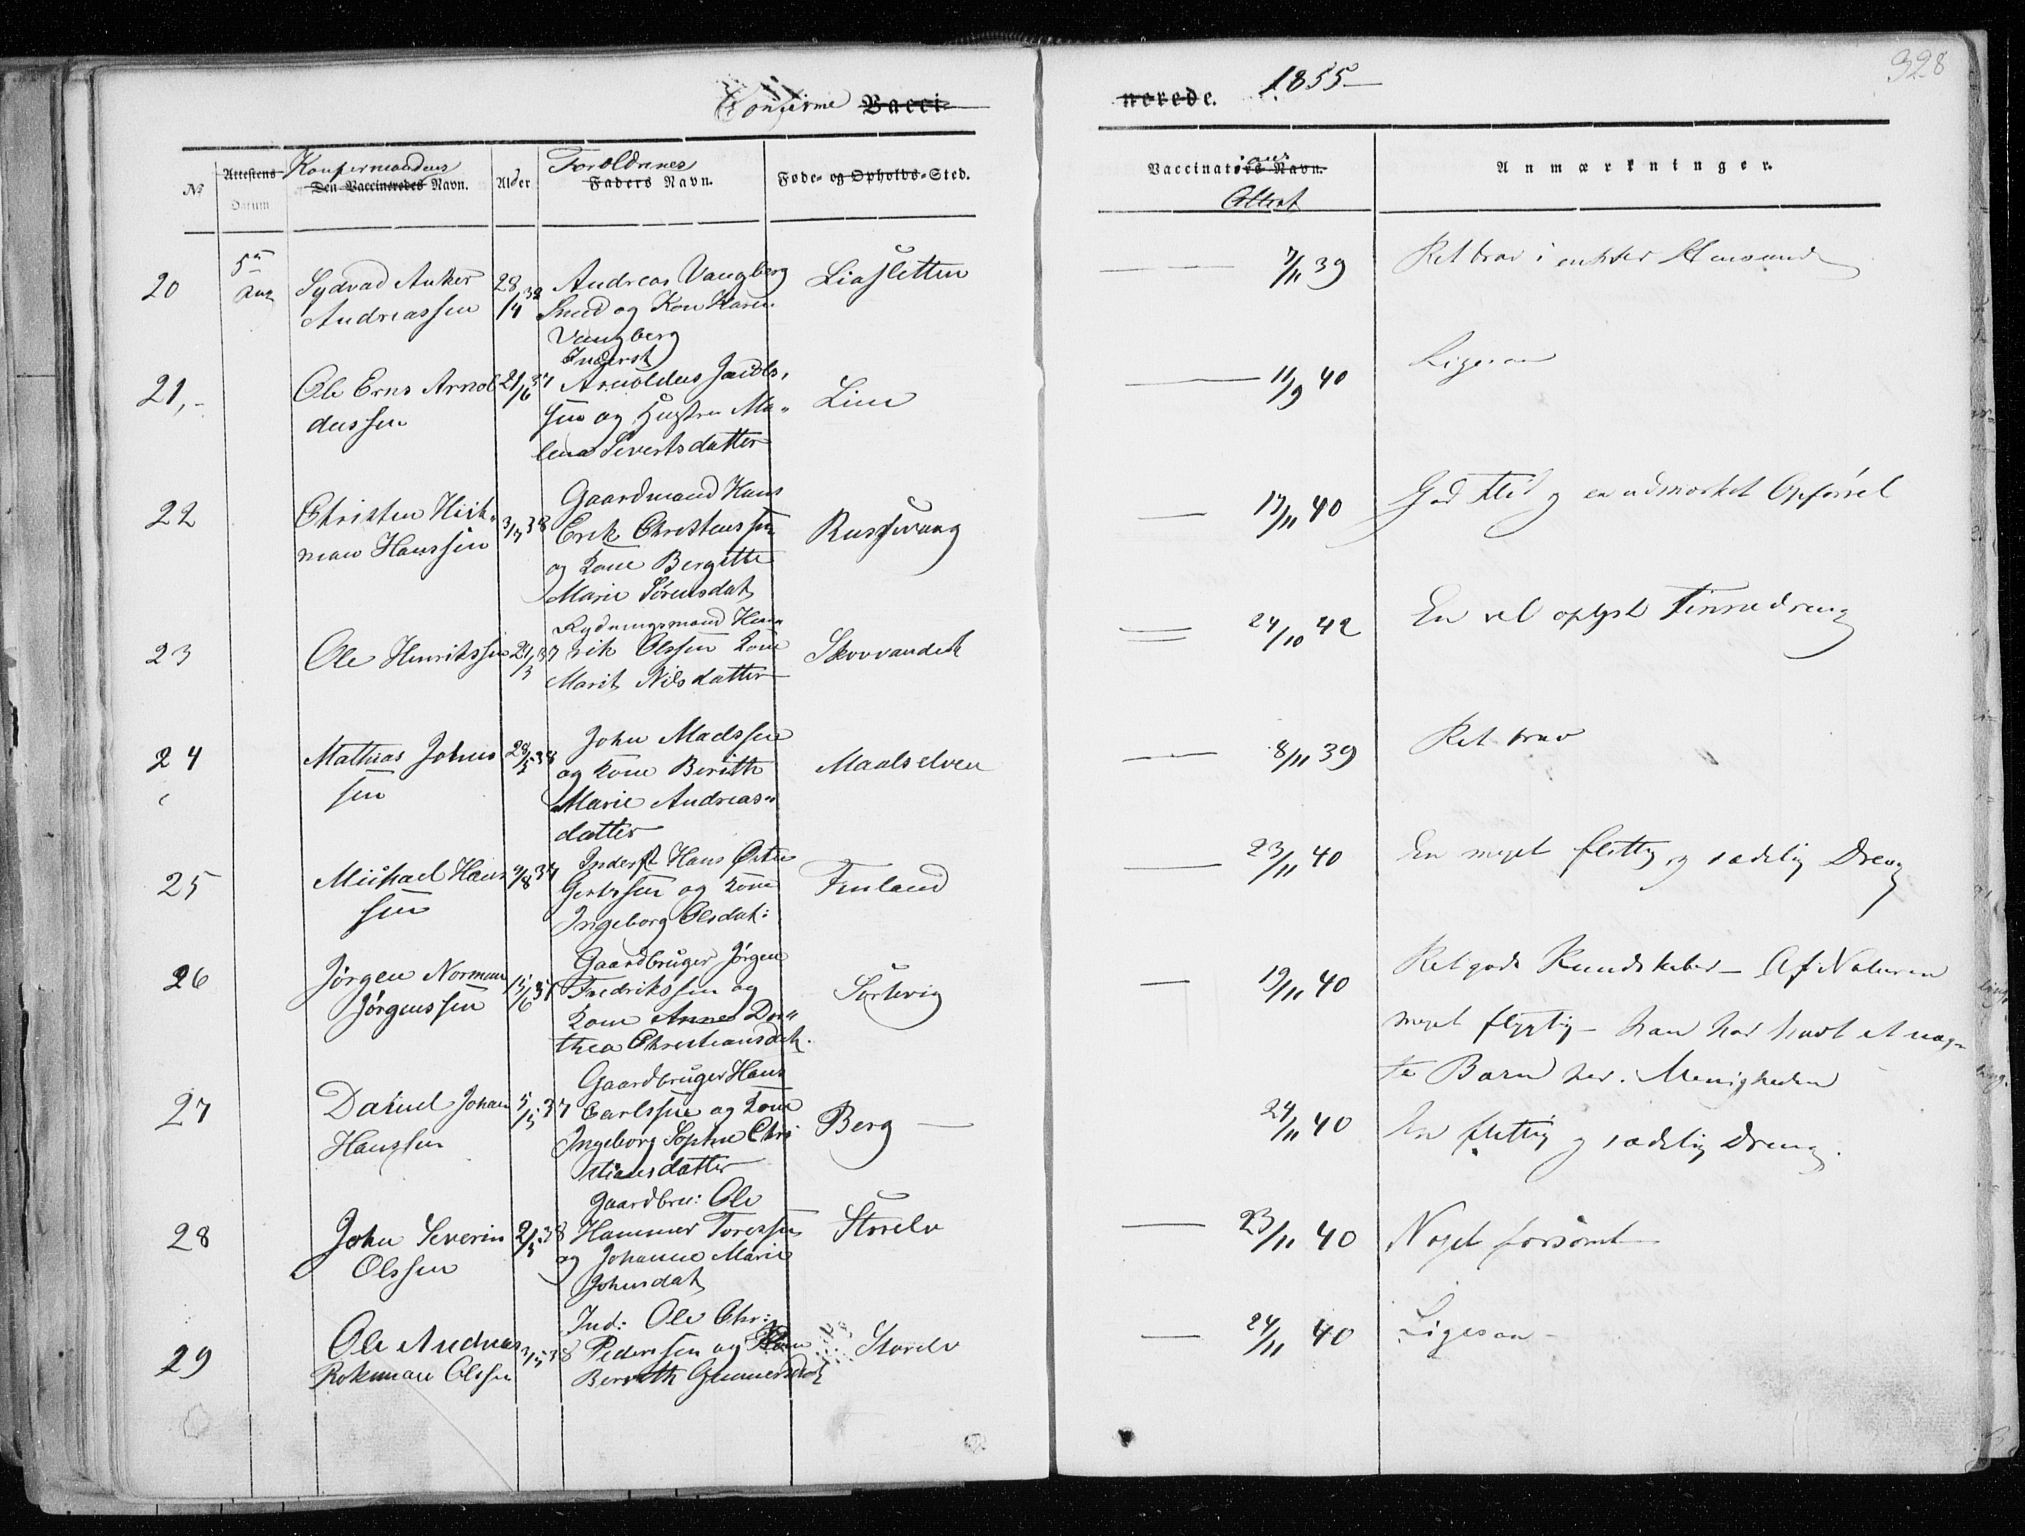 328
Konfirme Vacci-
nerede. 1855 —
№
Attestens Datum
Konfirmandens
Den Vaccineredes Navn.
Alder
Forældrenes
Faders Navn.
Føde- og Opholds-Sted.
Vaccinations
Vaccinatørs Navn.
Attest
Anmærkninger.
20
5te
Aug
Sydvad Anker
Andreassen
28/4 38
Andreas Vangberg
Smed og Kon Karen
Vangberg
Liasletten
7/11 39
Ret brav i enkelt Henseende
21,-
Ole Erns Arnol
dussen
21/6 37
Inderst
Arnoldus Jacobs,
sen og Hustru Ma,,
lena Sivertsdatter
Lien
11/9 40
Ligesaa
22
Christen Heit,,
man Hanssen
3/3 38
Gaardmand Hans
Erik Christenssen
og Kone Bergitte
Marie Sørensdat
Russevang
17/11 40
God Flid og en udmærket Opførsel
23
Ole Henrikssen
21/3 37
Rydningsmand Hen
rik Olssen Kone
Marit Nilsdatter
Skovvandet
24/10 42
En vel oplyst Finnedreng
24
Mathias Johns
sen
28/5 38
John Madssen
og Kone Berith
Marie Andreas,,
datter
Maalselven
8/11 39
Ret brav
25
Michael Hans
sen
9/8 37
Inderst Hans Østen
Gertssen og Kone
Ingeborg Olsdat:
Finland
23/11 40
En meget flittig og sædelig Dreng
26
Jørgen Norman
Jørgenssen
15/6 37
Gaardbruger Jørgen
Fredrikssen og
Kone Anne Dor,,
thea Christiansdat.
Sørtevig
19/11 40
Ret gode Kundskaber — Af Naturen
meget flygtig — han har havt et uæg-
te Barn her i Menigheden
27
Daniel Johan
Hanssen
5/5 37
Gaardbruger Hans
Carlssen og Kone
Ingeborg Sophie Chri
stiansdatter
Berg —
24/11 40
En flittig og sædelig Dreng.
28
John Severin
Olssen
2/3 38
Gaardbru: Ole
Hammer Toressen
og Johanne Marie
Johnsdat
Storelv
23/11 40
Noget forsømt
29
Ole Andreas
Rokman Olssen
3/5 38
Ind: Ole Chr:
Pederssen og Kone
Berith Gunnersdat
Storelv
24/11 40
Ligesaa —